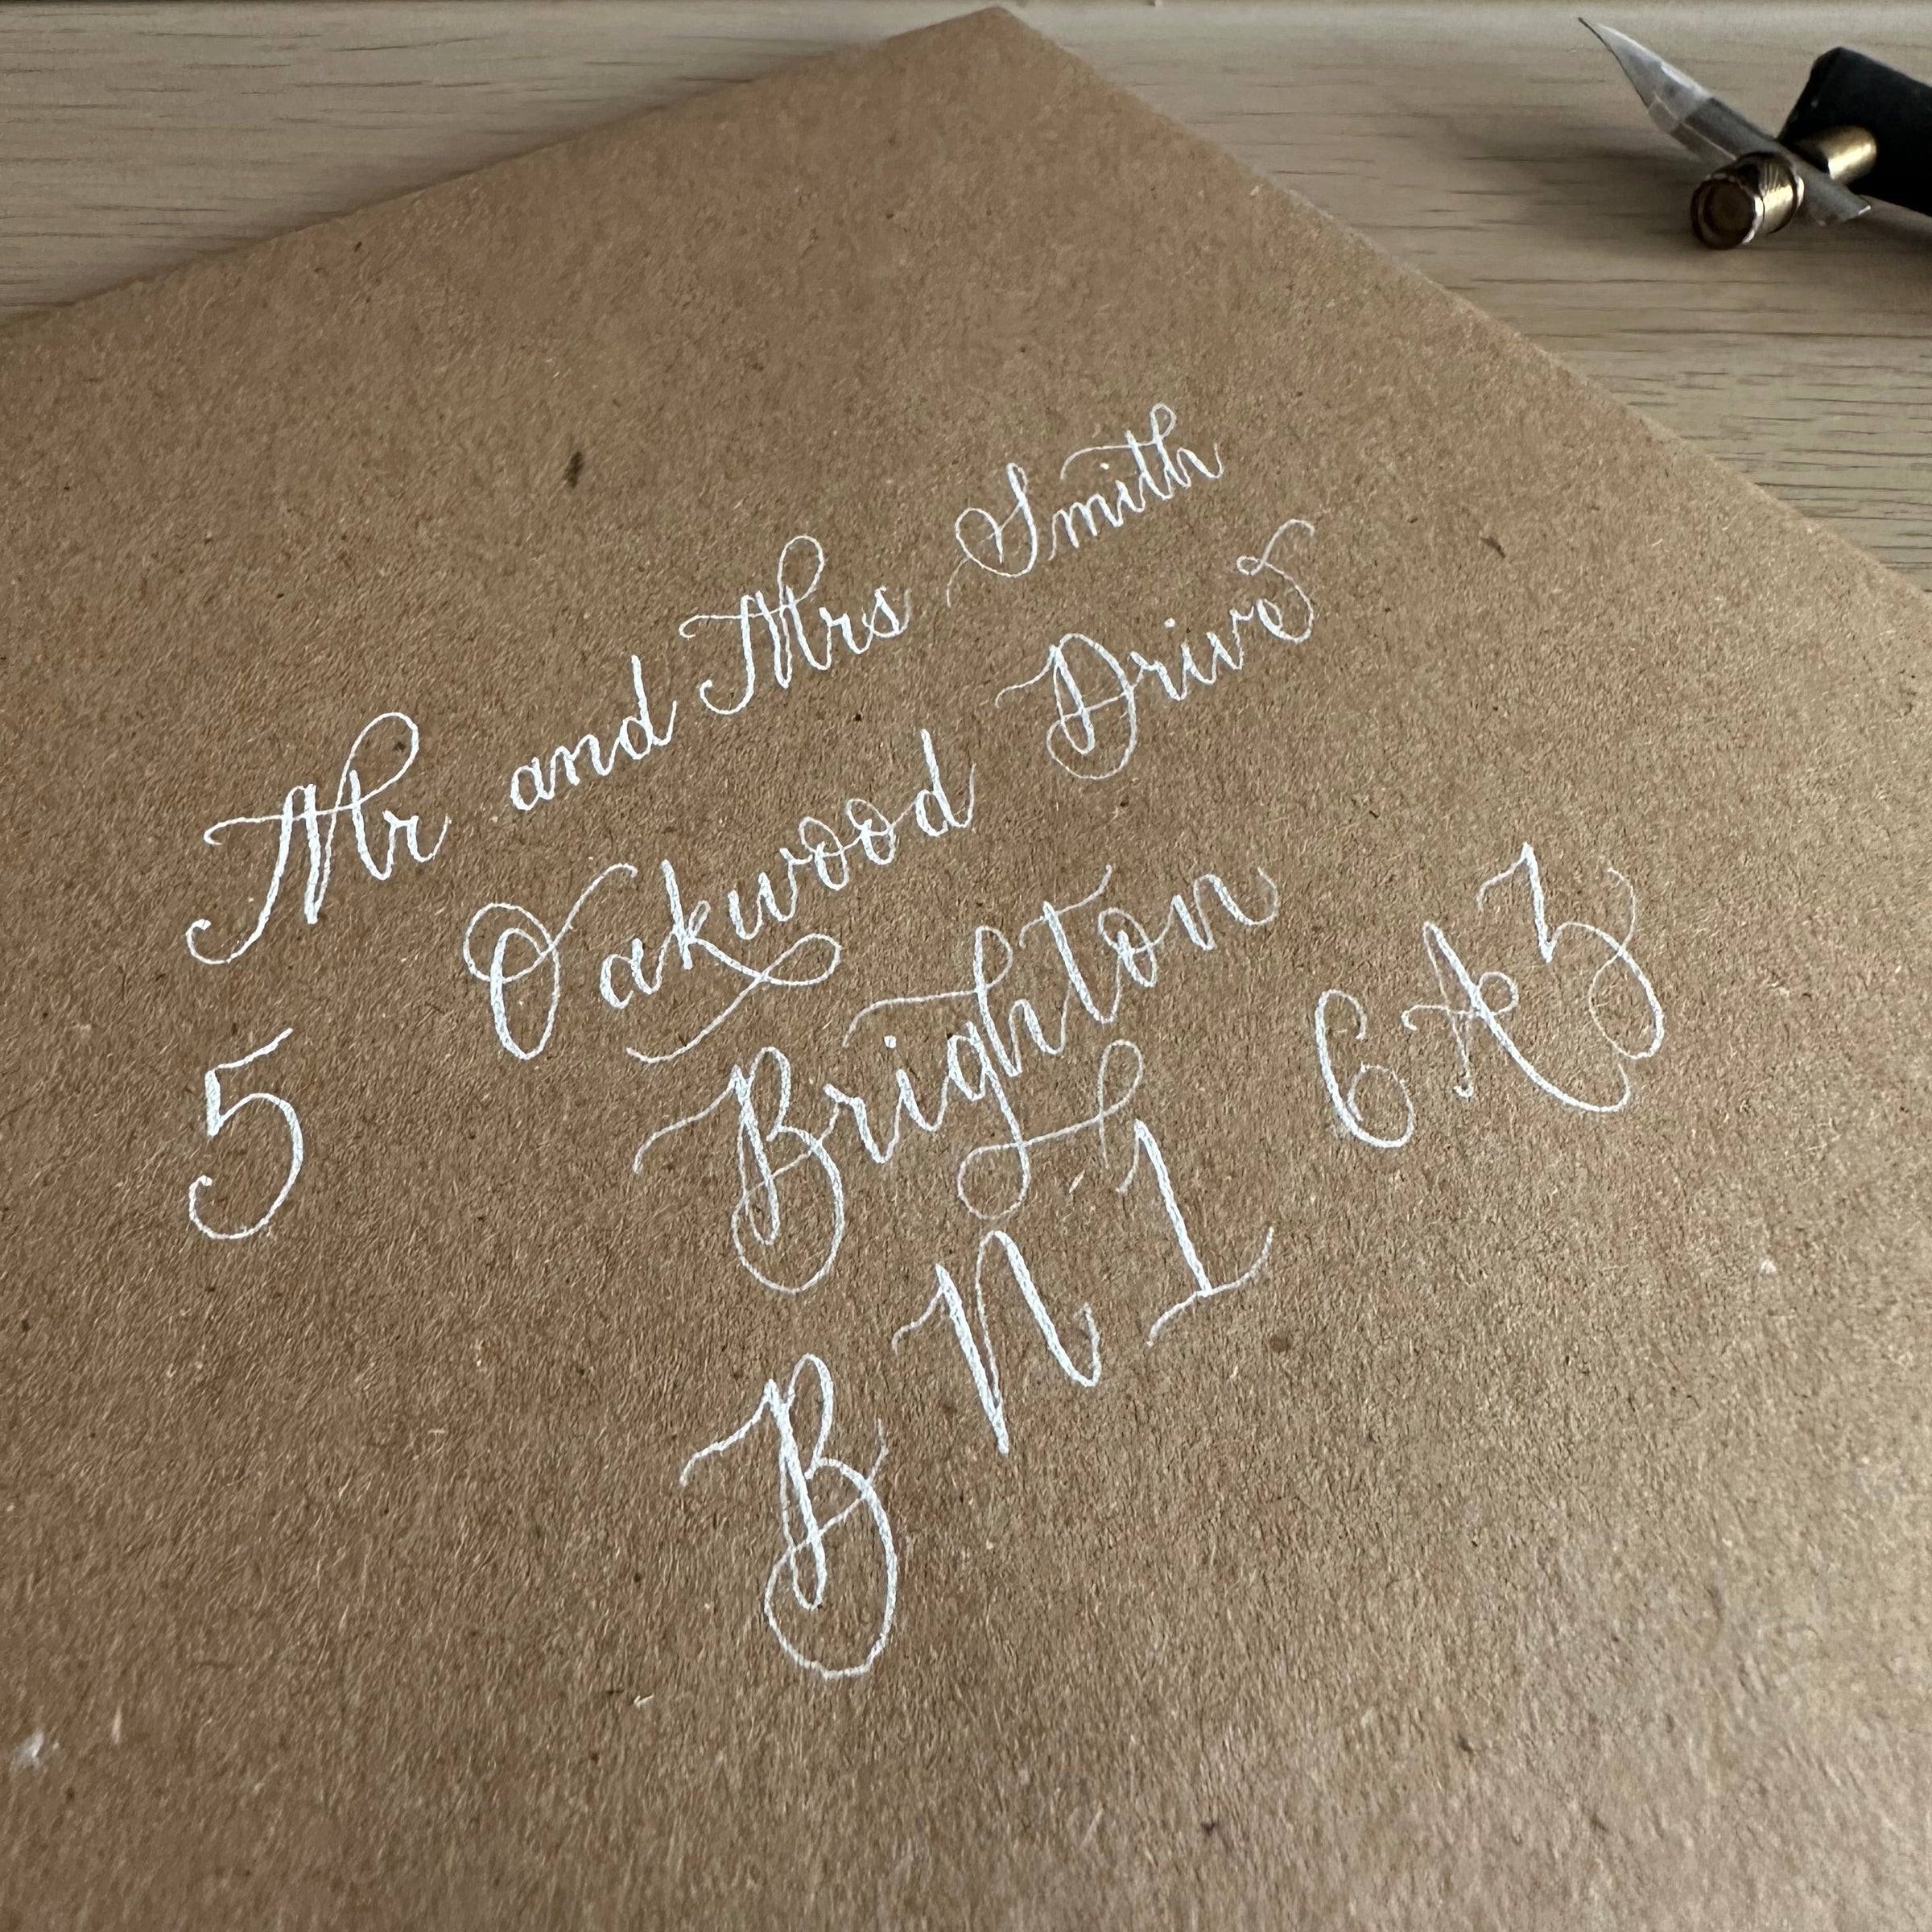 Mr and Mrs Smith
5 Oakwood Drive
Brighton
BN1 6AZ